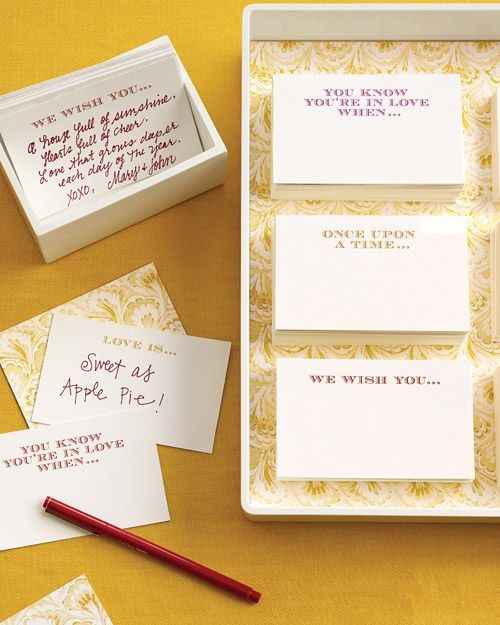 WE WISH YOU...
A house full of sunshine.
Hearts full of cheer.
Love that grows deeper
each day of the year.
XOXO, Mary & John
YOU KNOW
YOU'RE IN LOVE
WHEN...
ONCE UPON
A TIME...
WE WISH YOU...
LOVE IS...
Sweet as
Apple Pie!
YOU KNOW
YOU'RE IN LOVE
WHEN...